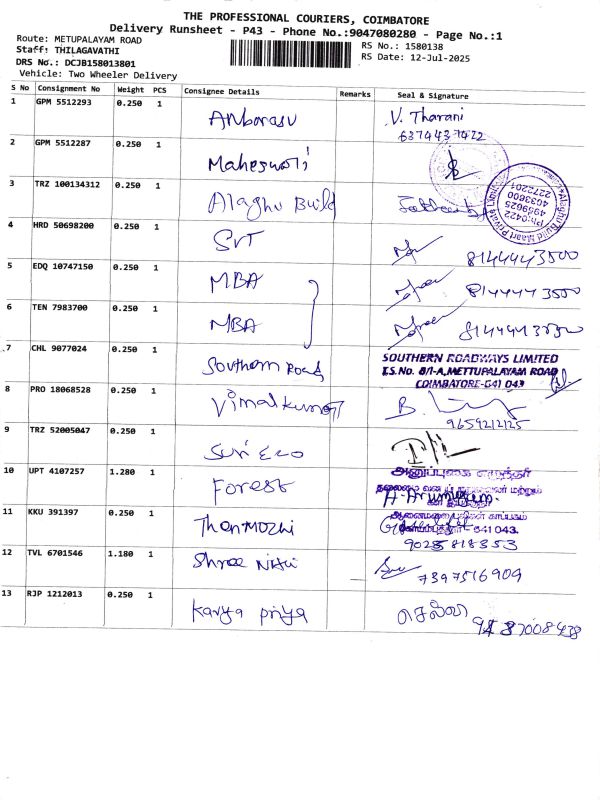 THE PROFESSIONAL COURIERS, COIMBATORE
Delivery Runsheet - P43 - Phone No.:9047080280 - Page No.:1
Route: METUPALAYAM ROAD
RS No.: 1580138
Staff: THILAGAVATHI
RS Date: 12-Jul-2025
DRS No.: DCJB158013801
Vehicle: Two Wheeler Delivery
S No Consignment No Weight PCS Consignee Details Remarks Seal & Signature
1 GPM 5512293 0.250 1 Anbarasu V. Tharani
6374437422
2 GPM 5512287 0.250 1 Maheswari
3 TRZ 100134312 0.250 1 Alaghu Build
Alaghu Build Maart Private Limited
Ph:0422
4959625
4033600
2272201
4 HRD 50698200 0.250 1 SVT 8144443500
5 EDQ 10747150 0.250 1 MBA 8144443500
6 TEN 7983700 0.250 1 MBA 8144443500
7 CHL 9077024 0.250 1 Southern Road
SOUTHERN ROADWAYS LIMITED
METTUPALAYAM ROAD
COIMBATORE-641 043
8 PRO 18068528 0.250 1 Vimalkumar
9659212125
9 TRZ 52005047 0.250 1 Suri Eco
10 UPT 4107257 1.280 1 Forest
A. Arumugam
11 KKU 391397 0.250 1 Thenmozhi
641043.
9025818353
12 TVL 6701546 1.180 1 Shree Nithi
7397516909
13 RJP 1212013 0.250 1 Kavya Priya செல்வி
9487008438